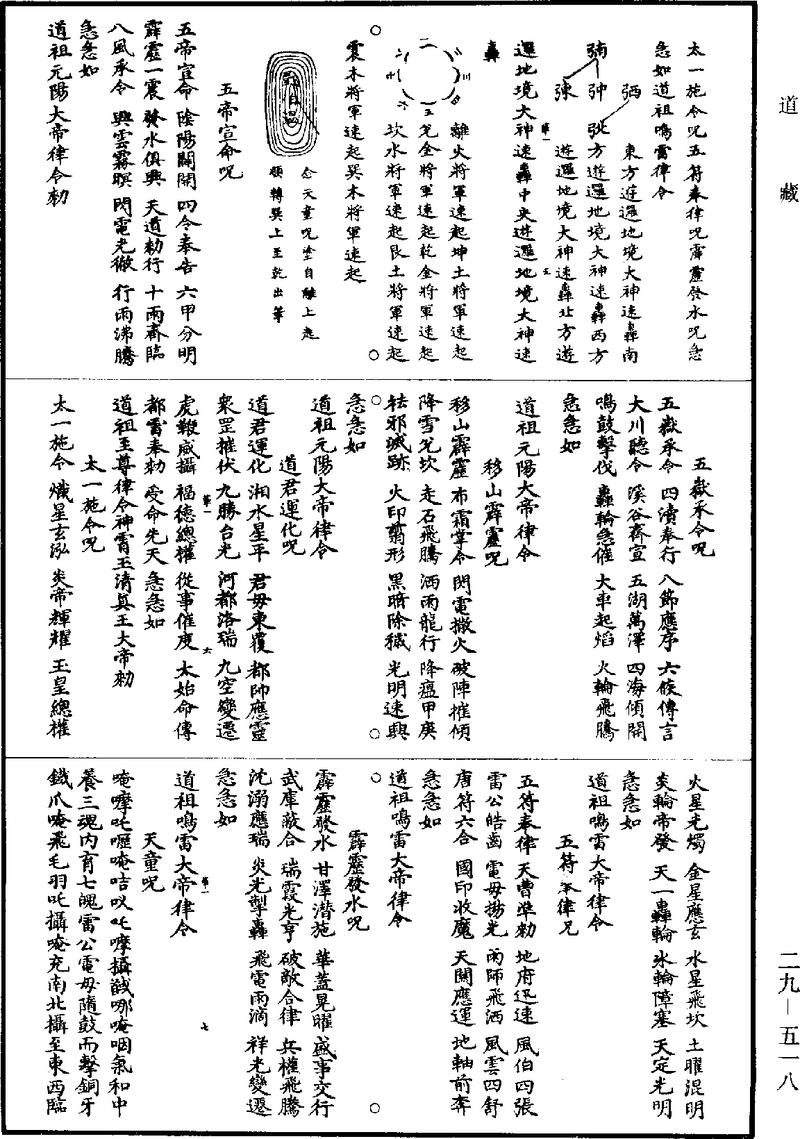 道藏
二九—五一八
太一施令呪五符奉律呪霹靂發水呪急
急如道祖鳴雷律令
東方遊邏地境大神速轟南
方遊邏地境大神速轟西方
遊邏地境大神速轟北方遊
邏地境大神速轟中央遊邏地境大神速
轟
離火將軍速起坤土將軍速起
兌金將軍速起乾金將軍速起
坎水將軍速起艮土將軍速起
震木將軍速起巽木將軍速起
念天童呪塗自離上起
領轉巽上至乾出筆
五帝宣命呪
五帝宣命 陰陽闢開 四令奉告 六甲分明
霹靂一震 發水俱興 天道勅行 十雨齊臨
八風承令 興雲霧暝 閃電光徹 行雨沸騰
急急如
道祖元陽大帝律令勅
五嶽承令呪
五嶽承令 四瀆奉行 八節應序 六候傳言
大川聽令 溪谷齊宣 五湖萬澤 四海傾開
鳴鼓擊伐 轟輪急催 大車起焰 火輪飛騰
急急如
道祖元陽大帝律令
移山霹靂呪
移山霹靂 布霜掌令 閃電撒火 破陣摧傾
降雪兌坎 走石飛騰 洒雨龍行 降瘟甲庚
祛邪滅跡 火印翦形 黑暗除穢 光明速興
急急如
道祖元陽大帝律令
道君運化呪
道君運化 湘水星平 君毋東覆 都帥應靈
衆罡摧伏 九勝台光 河都洛瑞 九空變遷
虎鞭威攝 福德總權 從事催度 太始命傳
都雷奉勅 受命先天 急急如
道祖至尊律令神霄玉清真王大帝勅
太一施令呪
太一施令 熾星玄泓 炎帝輝耀 玉皇總權
火星光燭 金星應玄 水星飛坎 土曜混明
炎輪帝發 天一轟輪 氷輪障塞 天定光明
急急如
道祖鳴雷大帝律令
五符奉律呪
五符奉律 天曹準勅 地府迅速 風伯四張
雷公皓齒 電母揚光 雨師飛洒 風雲四舒
唐符六合 國印收魔 天關應運 地軸前奔
急急如
道祖鳴雷大帝律令
霹靂發水呪
霹靂發水 甘澤潛施 華蓋晃曜 盛事交行
武庫蔽合 瑞霞光亨 破敵合律 兵權飛騰
沈溺應瑞 炎光掣轟 飛電雨滴 祥光變遷
急急如
道祖鳴雷大帝律令
天童呪
唵嚤吒囉唵咭㕧吒嚤攝䤋哪唵咽氣和中
養三魂內育七魄雷公電母隨鼓而擊銅牙
鐵爪唵飛毛羽吒攝唵充南北攝至東西臨